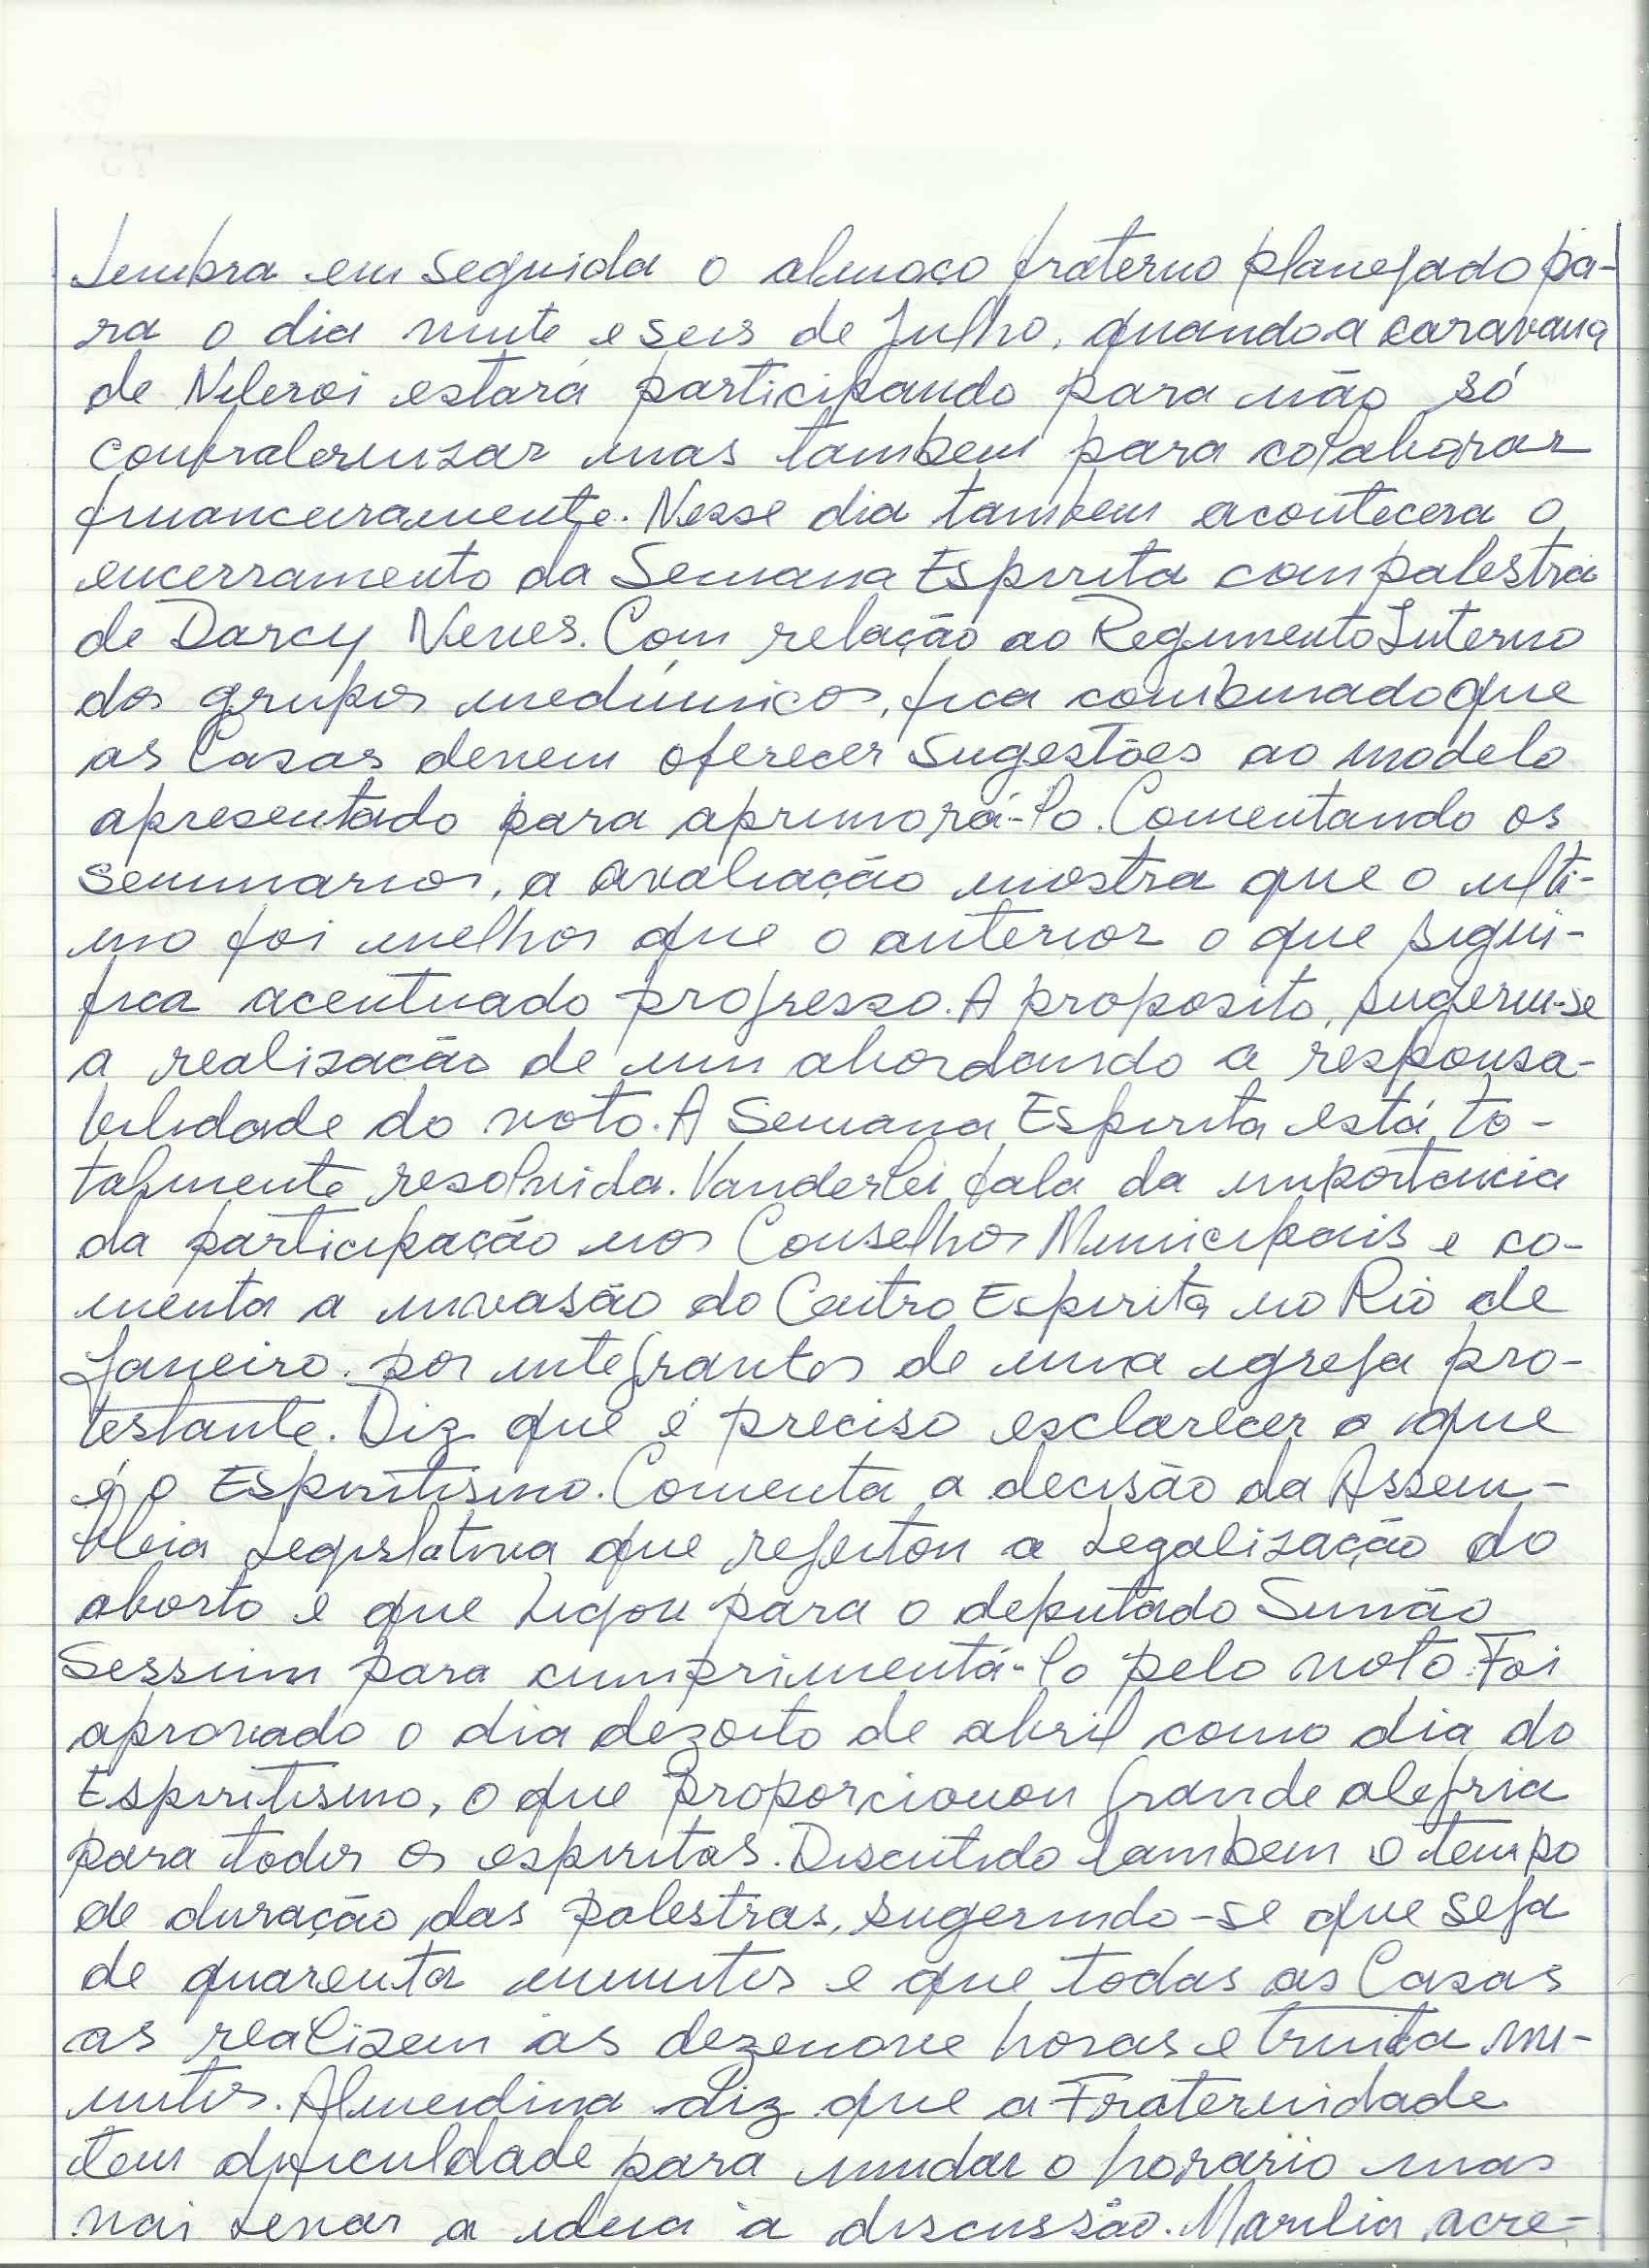 Lembra em seguida o almoço fraterno planejado pa-
ra o dia vinte e seis de Julho, quando a caravana
de Niteroi estará participando para não só
confraternizar mas tambem para colaborar
financeiramente. Nesse dia tambem acontecera o
encerramento da Semana Espirita com palestra
de Darcy Neves. Com relação ao Regimento Interno
dos grupos mediúnicos, fica combinado que
as Casas devem oferecer sugestões ao modelo
apresentado para aprimorá-lo. Comentando os
seminarios, a avaliação mostra que o ulti-
mo foi melhor que o anterior o que signi-
fica acentuado progresso. A proposito, sugeriu-se
a realização de um abordando a responsa-
bilidade do voto. A Semana Espirita está to-
talmente resolvida. Vanderlei fala da importancia
da participação nos Conselhos Municipais e co-
menta a invasão do Centro Espirita no Rio de
Janeiro. por integrantes de uma igreja pro-
testante. Diz que é preciso esclarecer o que
é o Espiritismo. Comenta a decisão da Assem-
bleia Legislativa que rejeitou a Legalização do
aborto e que Ligou para o deputado Simão
Sessim para cumprimentá-lo pelo voto. Foi
aprovado o dia dezoito de abril como dia do
Espiritismo, o que proporcionou grande alegria
para todos os espiritas. Discutido tambem o tempo
de duração das palestras, sugerindo-se que seja
de quarenta minutos e que todas as Casas
as realizem às dezenove horas e trinta mi-
nutos. Almerdina diz que a Fraternidade
tem dificuldade para mudar o horario mas
vai Levar a ideia à discussão. Marilia acre-